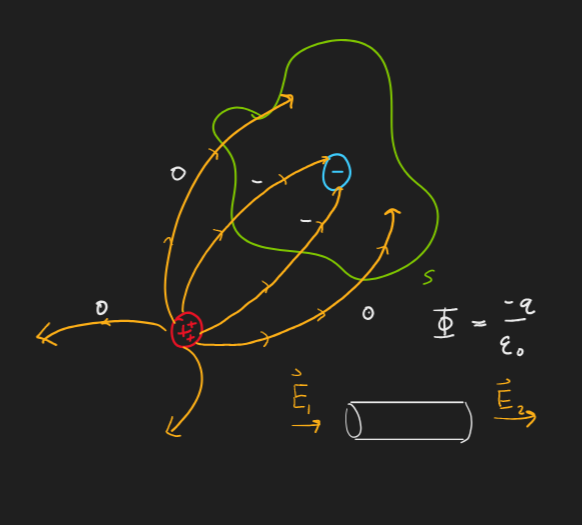 0
-
-
-
0
++
+
+
0
S
Φ = -q/q₀
E⃗₁
E⃗₂